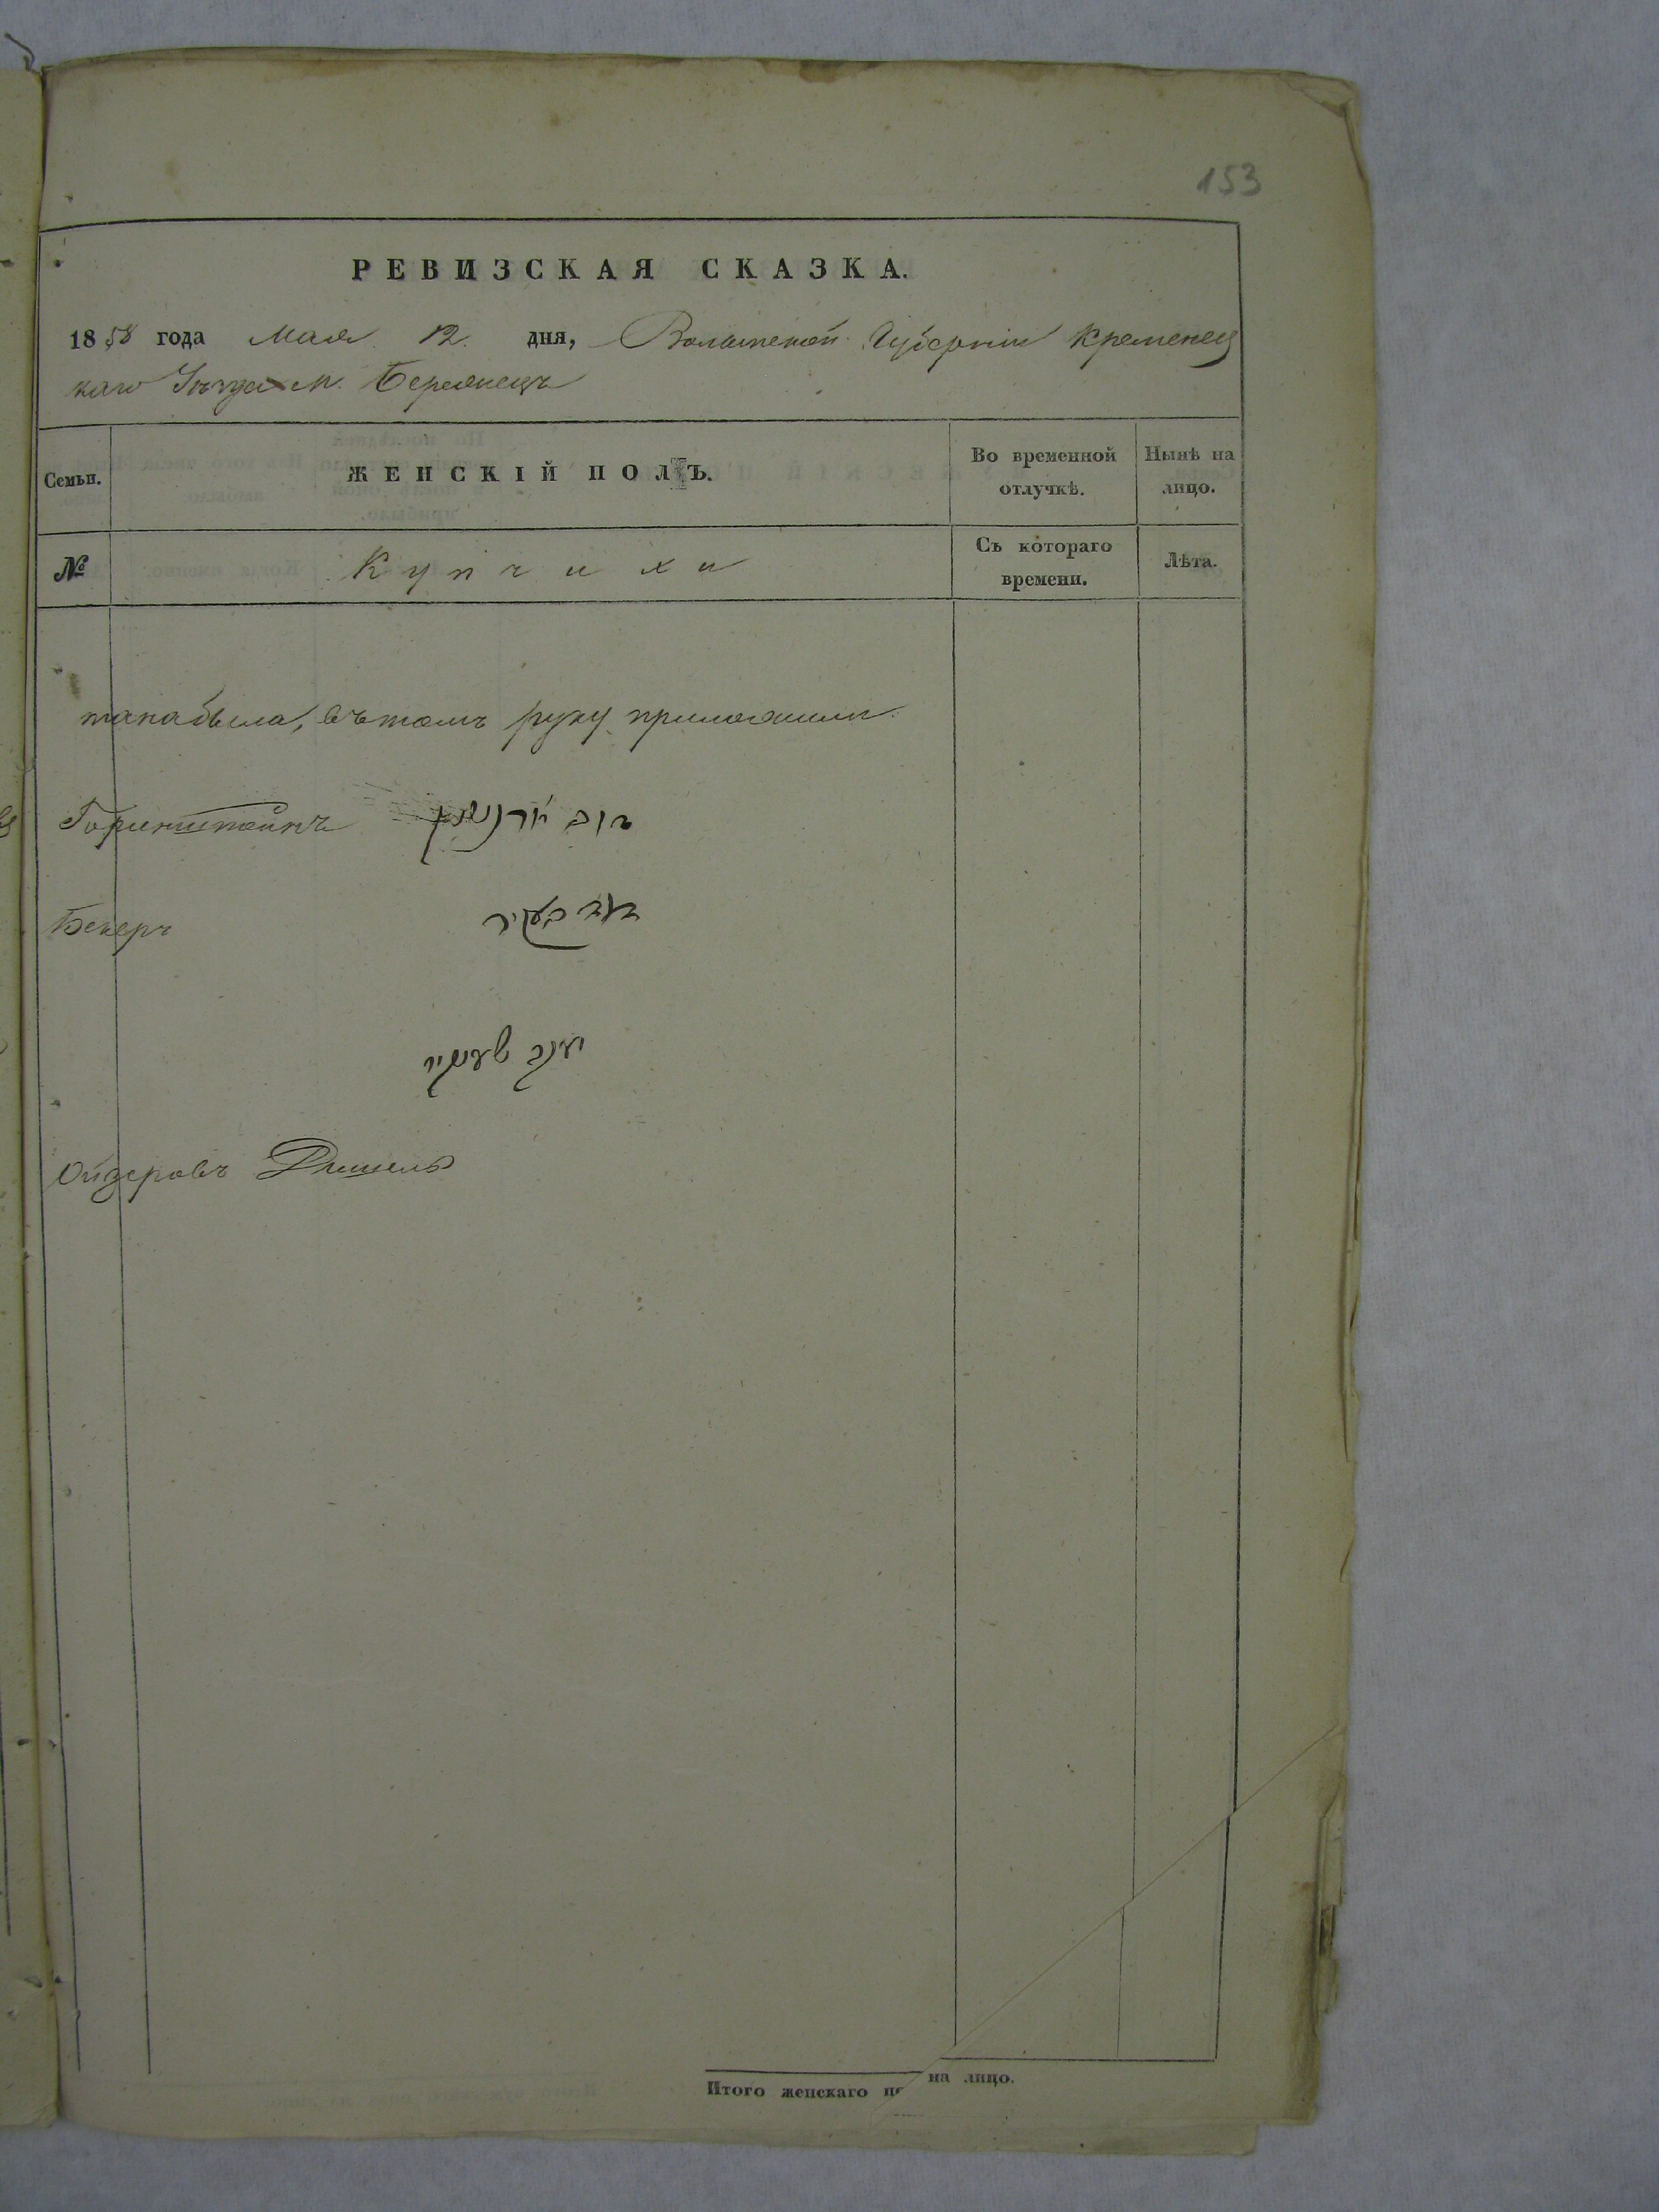 153
РЕВИЗСКАЯ СКАЗКА.
1858 года Мая 12 дня, Волынской Губерніи Кременец
каго Уѣзда м. Бережецъ
Семьи. ЖЕНСКІЙ ПОЛЪ. Во временной отлучкѣ. Нынѣ на лицо.
№ Купчихи Съ котораго времени. Лѣта.
такабыла, въ томъ руку приложили.
Горинштейнъ
Бекеръ
בעקיר
Ойзеровъ
Итого женскаго по на лицо.